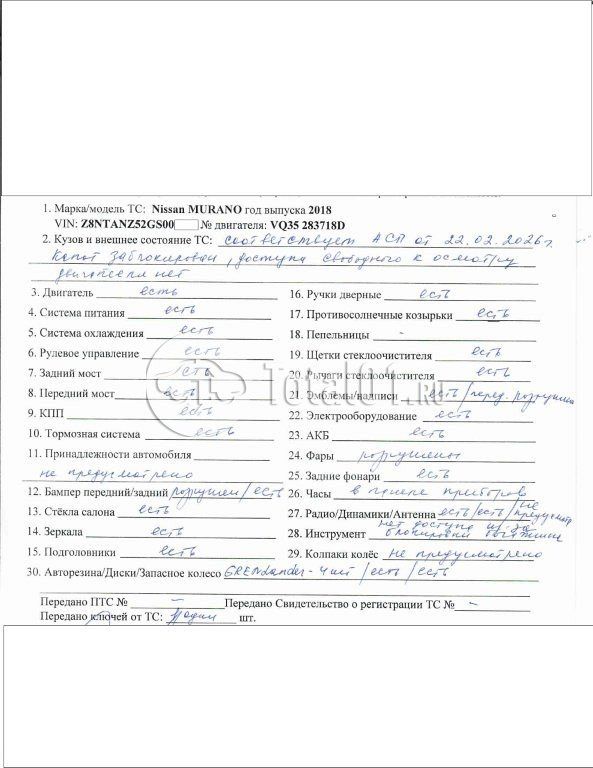 1. Марка/модель ТС: Nissan MURANO год выпуска 2018
VIN: Z8NTANZ52GS00 № двигателя: VQ35 283718D
2. Кузов и внешнее состояние ТС: соответствует АСП от 22.02.2026г.
Капот заблокирован, доступа свободного к осмотру
двигателя нет
3. Двигатель есть
4. Система питания есть
5. Система охлаждения есть
6. Рулевое управление есть
7. Задний мост есть
8. Передний мост есть
9. КПП есть
10. Тормозная система есть
11. Принадлежности автомобиля
не предусмотрено
12. Бампер передний/задний разрушен/есть
13. Стёкла салона есть
14. Зеркала есть
15. Подголовники есть
16. Ручки дверные есть
17. Противосолнечные козырьки есть
18. Пепельницы -
19. Щетки стеклоочистителя есть
20. Рычаги стеклоочистителя есть
21. Эмблемы/надписи есть/перед. разрушена
22. Электрооборудование есть
23. АКБ есть
24. Фары разрушены
25. Задние фонари есть
26. Часы в панели приборов
27. Радио/Динамики/Антенна есть/есть/не предусмотр
28. Инструмент нет доступа из-за
блокировки багажника
29. Колпаки колёс не предусмотрено
30. Авторезина/Диски/Запасное колесо GRENLander - 4шт/есть/есть
Передано ПТС № - Передано Свидетельство о регистрации ТС № -
Передано ключей от ТС: 1/один шт.
Total01.RU